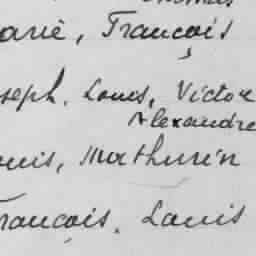 arie, François
seph. Louis, Victor
Alexandre
ouis, Mathurin
rançois. Louis